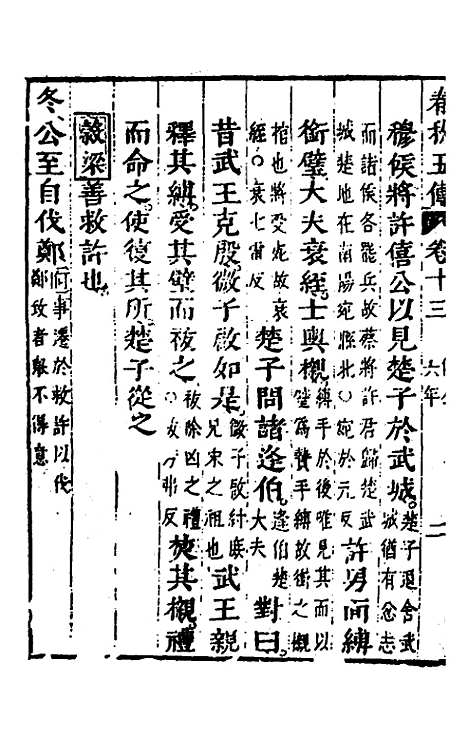 春秋五傳 卷十三 六年 二
穆侯將許僖公以見楚子於武城。楚子退舍武城猶有忿志
而諸侯各罷兵故蔡將許君歸楚武城楚地在南陽宛縣北○宛於元反 許男面縛
銜璧大夫衰絰。士輿櫬。縛手於後唯見其面以璧爲贄手縛故銜之櫬
棺也將受死故衰絰○衰七雷反 楚子問諸逢伯。逢伯楚大夫 對曰。
昔武王克殷。微子啟如是。微子啟紂庶兄宋之祖也 武王親
釋其縛。受其璧而祓之。祓除凶之禮○祓 弗反 焚其櫬。禮
而命之。使復其所。楚子從之
穀梁善救許也。
冬。公至自伐鄭何事遷於救許以伐鄭致者舉不得意